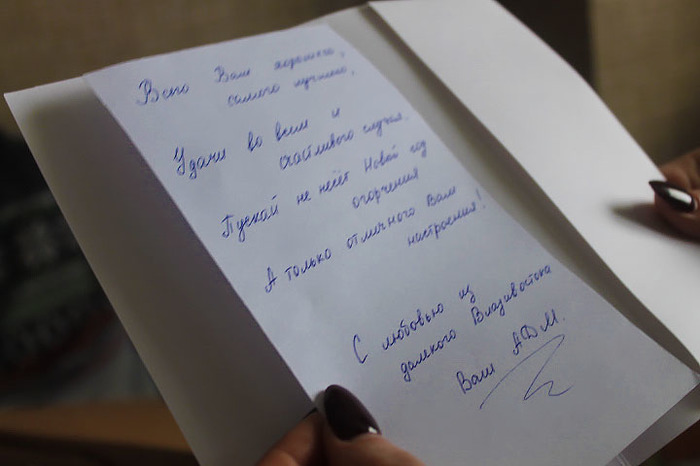 Всего Вам хорошего,
самого лучшего,
Удачи во всем и
счастливого случая.
Пускай не несёт Новый год
огорчения
А только отличного Вам
настроения!
С любовью из
далёкого Владивостока
Ваш АДМ.